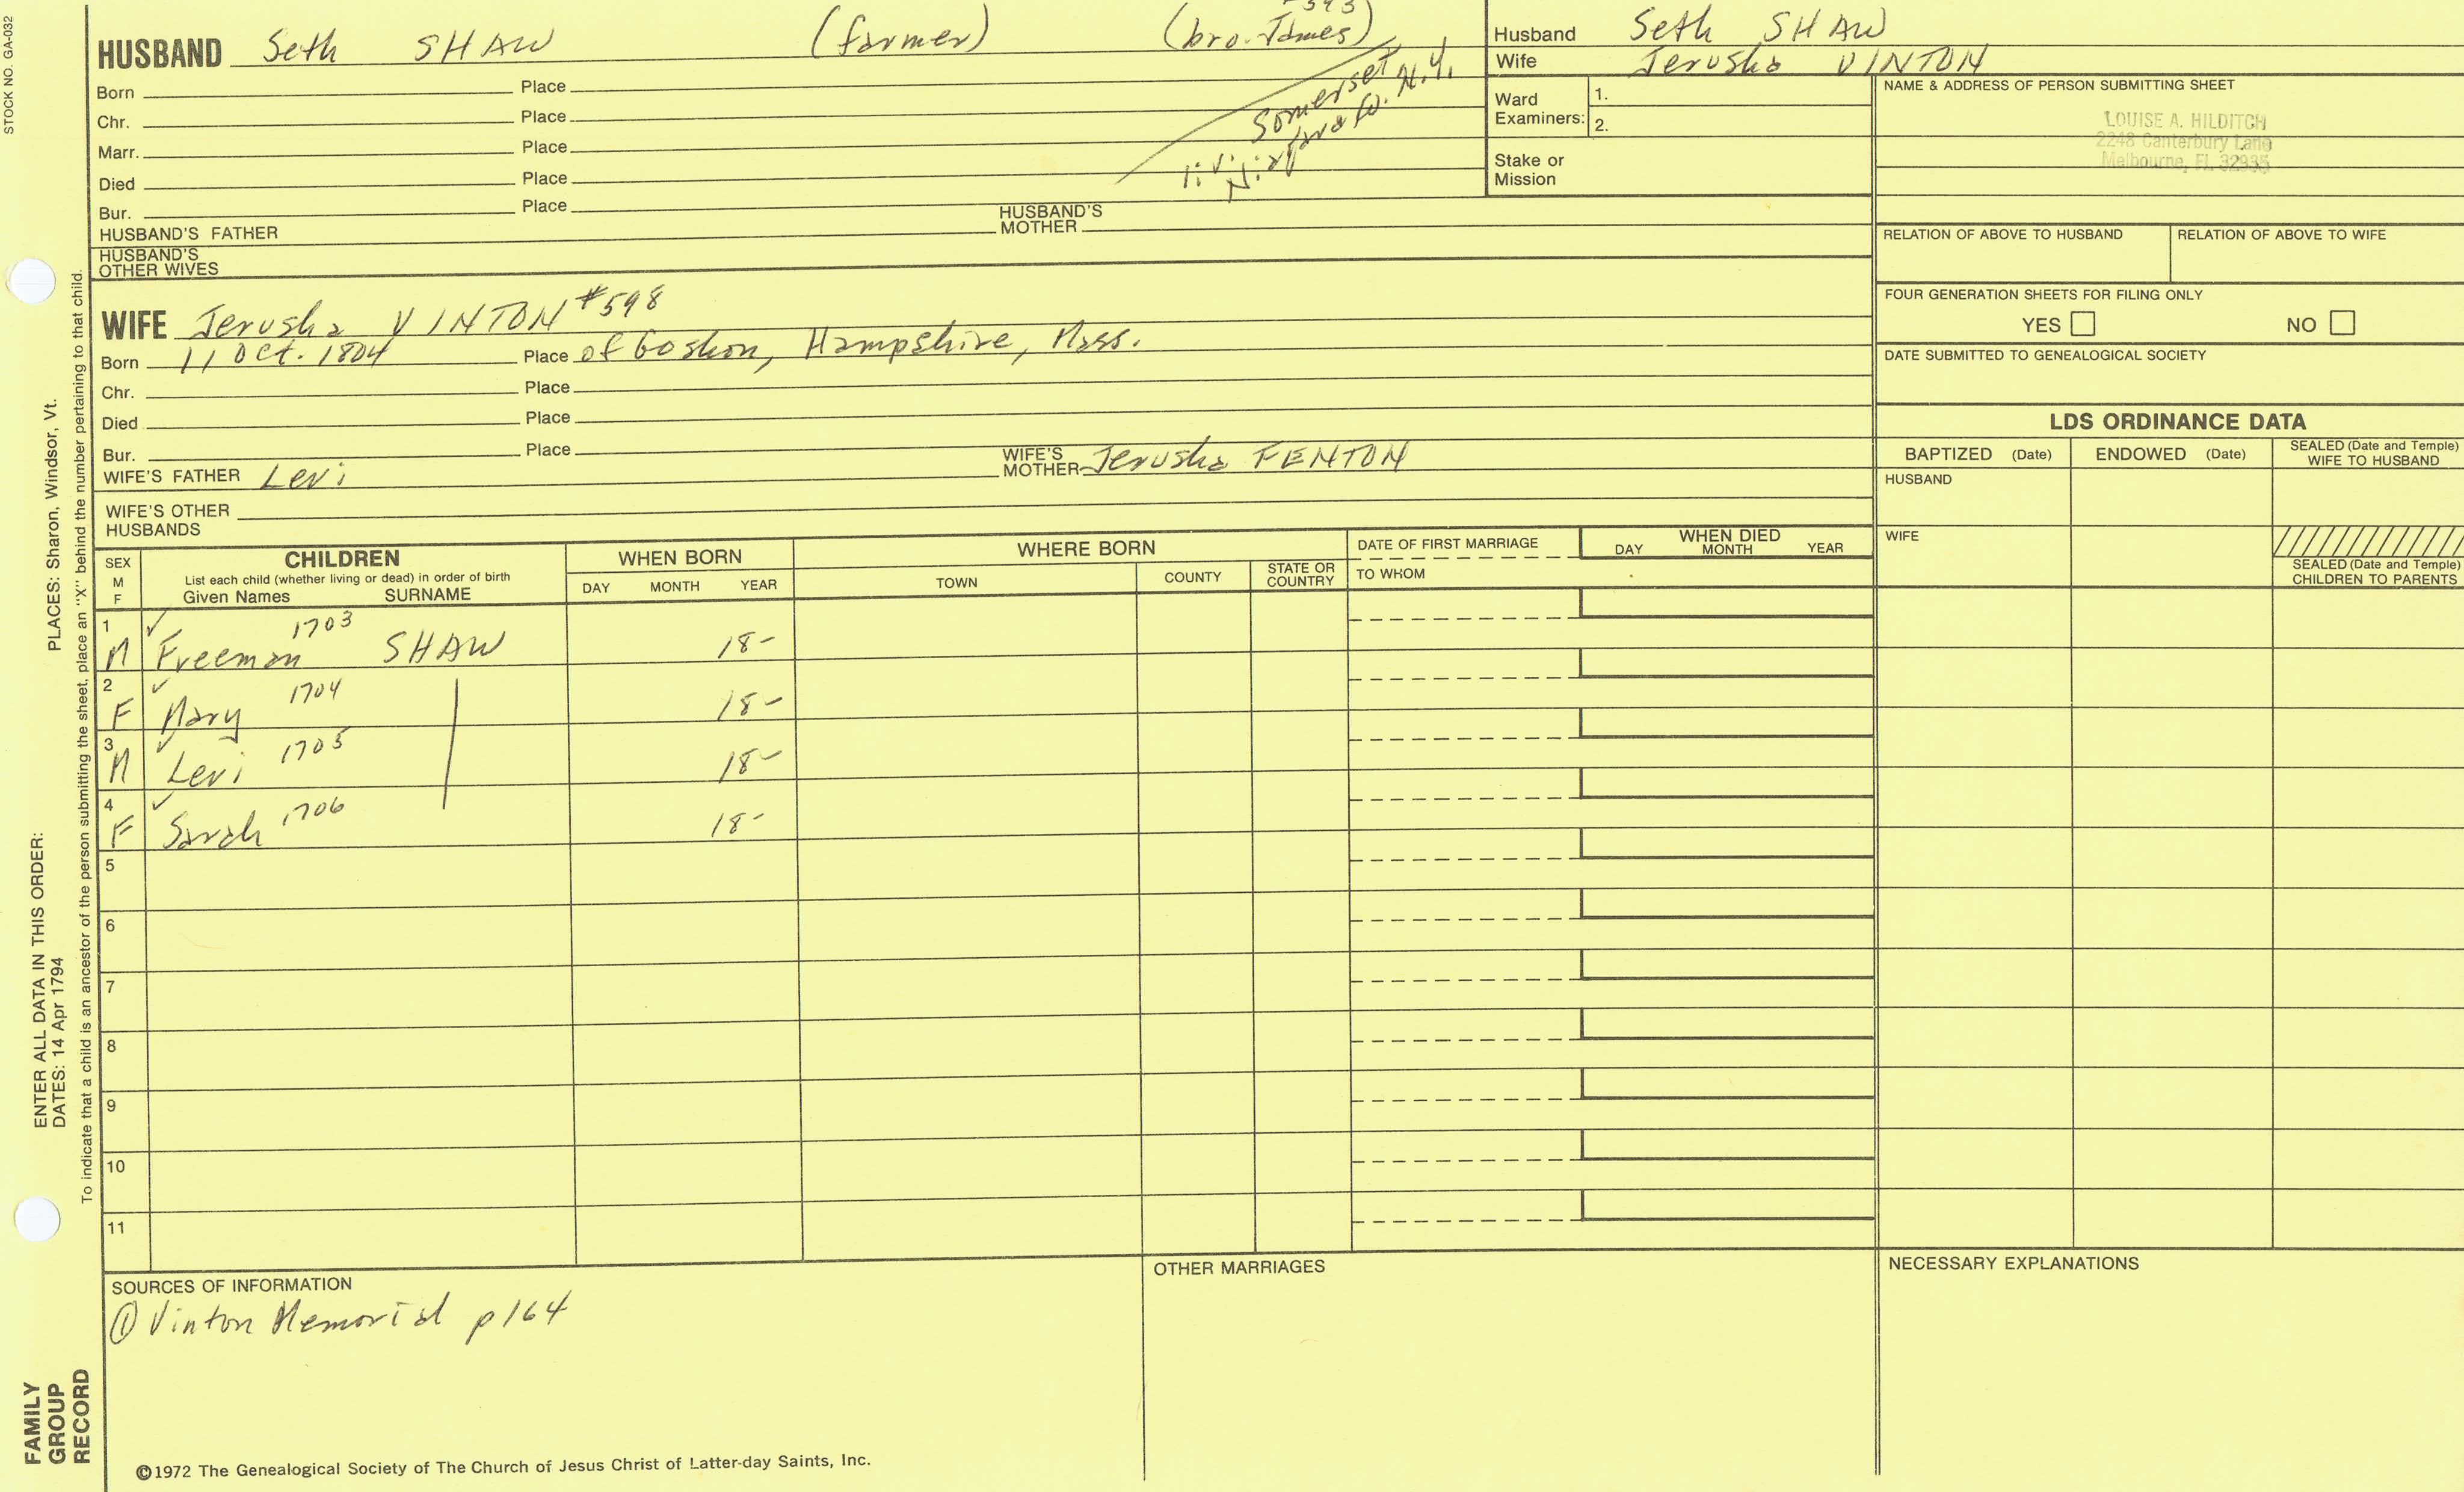 STOCK NO. GA-032
HUSBAND Seth SHAW (farmer) (bro. James)
Born Place
Chr. Place
Marr. Place
Died Place
Bur. Place
Somerset
Co. N.Y.
HUSBAND'S FATHER HUSBAND'S MOTHER
HUSBAND'S OTHER WIVES
WIFE Jerusha VINTON #598
Born 11 Oct. 1804 Place of Goshen, Hampshire, Mass.
Chr. Place
Died Place
Bur. Place
WIFE'S FATHER Levi WIFE'S MOTHER Jerusha FENTON
WIFE'S OTHER HUSBANDS
Husband Seth SHAW
Wife Jerusha VINTON
Ward Examiners: 1.
2.
Stake or Mission
NAME & ADDRESS OF PERSON SUBMITTING SHEET
LOUISE A. HILDITCH
2248 Canterbury Lane
Melbourne, FL 32935
RELATION OF ABOVE TO HUSBAND RELATION OF ABOVE TO WIFE
FOUR GENERATION SHEETS FOR FILING ONLY
YES NO
DATE SUBMITTED TO GENEALOGICAL SOCIETY
LDS ORDINANCE DATA
BAPTIZED (Date) ENDOWED (Date) SEALED (Date and Temple) WIFE TO HUSBAND
HUSBAND
WIFE
SEALED (Date and Temple) CHILDREN TO PARENTS
SEX M F
CHILDREN
List each child (whether living or dead) in order of birth
Given Names SURNAME
WHEN BORN
DAY MONTH YEAR
WHERE BORN
TOWN COUNTY STATE OR COUNTRY
DATE OF FIRST MARRIAGE
TO WHOM
WHEN DIED
DAY MONTH YEAR
1 M ✓ Freeman 1703 SHAW 18-
2 F ✓ Mary 1704 18-
3 M ✓ Levi 1705 18-
4 F ✓ Sarah 1706 18-
5
6
7
8
9
10
11
SOURCES OF INFORMATION
① Vinton Memorial p164
OTHER MARRIAGES
NECESSARY EXPLANATIONS
©1972 The Genealogical Society of The Church of Jesus Christ of Latter-day Saints, Inc.
FAMILY GROUP RECORD
ENTER ALL DATA IN THIS ORDER:
DATES: 14 Apr 1794
PLACES: Sharon, Windsor, Vt.
To indicate that a child is an ancestor of the person submitting the sheet, place an "X" behind the number pertaining to that child.